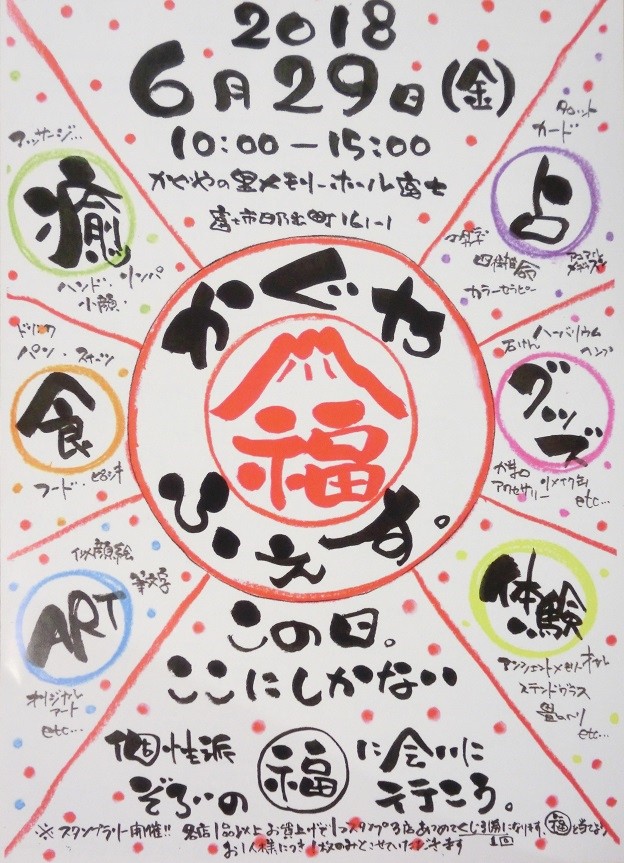 2018
6月29日(金)
10:00-15:00
かぐやの里メモリーホール富士
富士市日乃出町161-1
マッサージ...
癒
ハンド・リンパ
小顔・
タロット
カード
占
マヤ
四柱推命
カラーセラピー
ドリンク
パン・スイーツ
食
フード・ピロシキ
ハーバリウム
石けん
グッズ
がま口
アクセサリー リメイク缶
etc...
かぐや
福
ひえす。
似顔絵
筆文字
ART
オリジナル
アート
etc...
体験
アンシェントメモリーオイル
ステンドグラス
etc...
この日。
ここにしかない
個性派
ぞろいの
福
に会いに
行こう。
※スタンプラリー開催!! 各店1品以上お買上げで1つスタンプ3店あつめてくじ引き1回になります。福を当てよう
お1人様につき1枚のみとさせていただきます